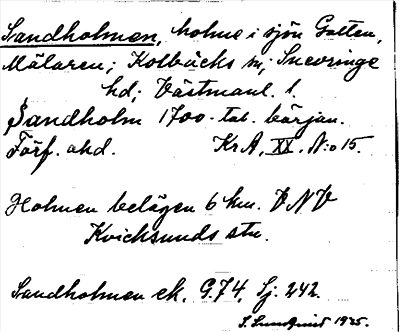 Sandholmen, holme i sjön Gotten,
Mälaren; Kolbäcks sn; Snevringe
hd; Västmanl. l.
Sandholm 1700-tal. början.
Förf. ahd. KrA, XX, N:o 15.
Holmen belägen 6 km. VNV
Kvicksunds stn.
Sandholmen ek. G.74, Sj. 242.
S. Lundquist 1925.